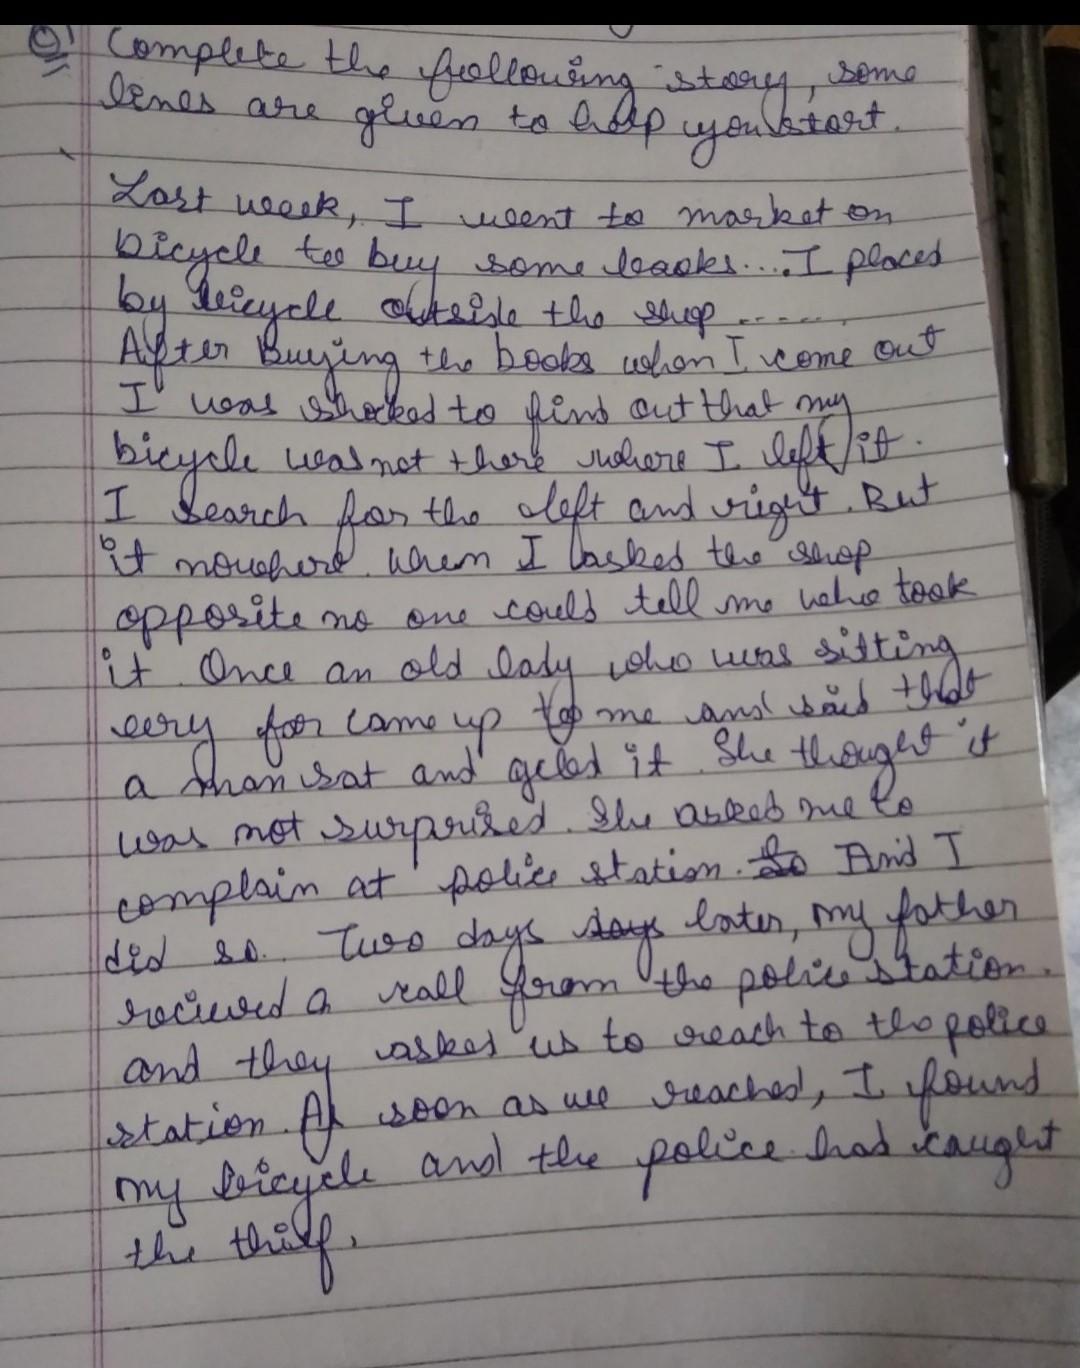 Q1 Complete the following story, some
lines are given to help you start.
Last week, I went to market on
bicycle to buy some books....I placed
by bicycle outside the shop ......
After Buying the books when I come out
I was shocked to find out that my
bicycle was not there where I left it.
I search for the left and right. But
it nowhere. When I asked the shop
opposite no one could tell me who took
it. Once an old lady who was sitting
for came up to me and said that
a man sat and it. She thought it
was not surprised. She asked me to
complain at police station. So And I
did so. Two days days later, my father
recieved a call from the police station.
and they asked us to reach to the police
station. As soon as we reached, I found
my bicycle and the police had caught
the thief.